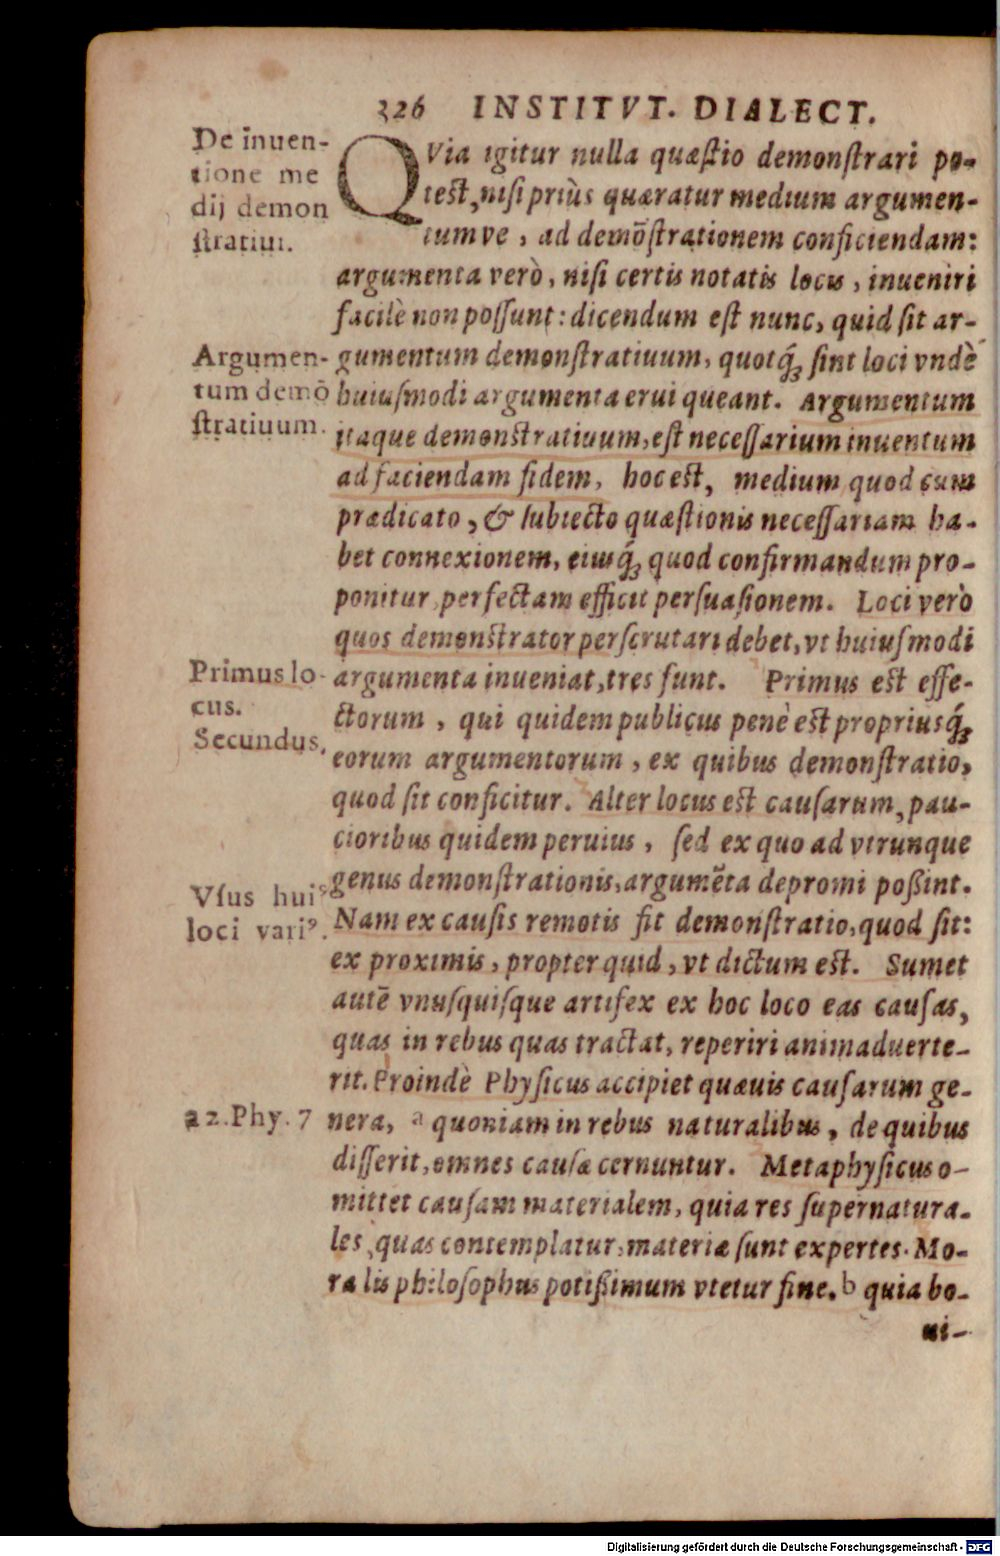 326 INSTITVT. DIALECT.
De inuen-
tione me
dij demon
ſtratiui.
QVia igitur nulla quæſtio demonſtrari po-
teſt, niſi priùs quæratur medium argumen-
tumve, ad demõſtrationem conficiendam:
argumenta verò, niſi certis notatis locis, inueniri
facilè non poſſunt: dicendum eſt nunc, quid ſit ar-
Argumen-
tum demõ
ſtratiuum.
gumentum demonſtratiuum, quotq́ꝫ ſint loci vndè
huiuſmodi argumenta erui queant. Argumentum
itaque demonſtratiuum, eſt neceſſarium inuentum
ad faciendam fidem, hoc eſt, medium quod cum
prædicato, & ſubiecto quæſtionis neceſſariam ha-
bet connexionem, eiusq́ꝫ quod confirmandum pro-
ponitur, perfectam efficit perſuaſionem. Loci verò
quos demonſtrator perſcrutari debet, vt huiuſmodi
Primus lo-
cus.
Secundus.
argumenta inueniat, tres ſunt. Primus eſt effe-
ctorum, qui quidem publicus penè eſt propriusq́ꝫ
eorum argumentorum, ex quibus demonſtratio,
quod ſit conficitur. Alter locus eſt cauſarum, pau-
cioribus quidem peruius, ſed ex quo ad vtrunque
Vſus huiꝰ
loci variꝰ.
genus demonſtrationis, argumẽta depromi poßint.
Nam ex cauſis remotis fit demonſtratio, quod ſit:
ex proximis, propter quid, vt dictum eſt. Sumet
autē vnuſquiſque artifex ex hoc loco eas cauſas,
quas in rebus quas tractat, reperiri animaduerte-
rit. Proindè Phyſicus accipiet quæuis cauſarum ge-
a 2. Phy. 7
nera, a quoniam in rebus naturalibus, de quibus
diſſerit, omnes cauſæ cernuntur. Metaphyſicus o-
mittet cauſam materialem, quia res ſupernatura-
les, quas contemplatur, materiæ ſunt expertes. Mo-
ralis philoſophus potißimum vtetur fine. b quia bo-
ni-
Digitalisierung gefördert durch die Deutsche Forschungsgemeinschaft - DFG